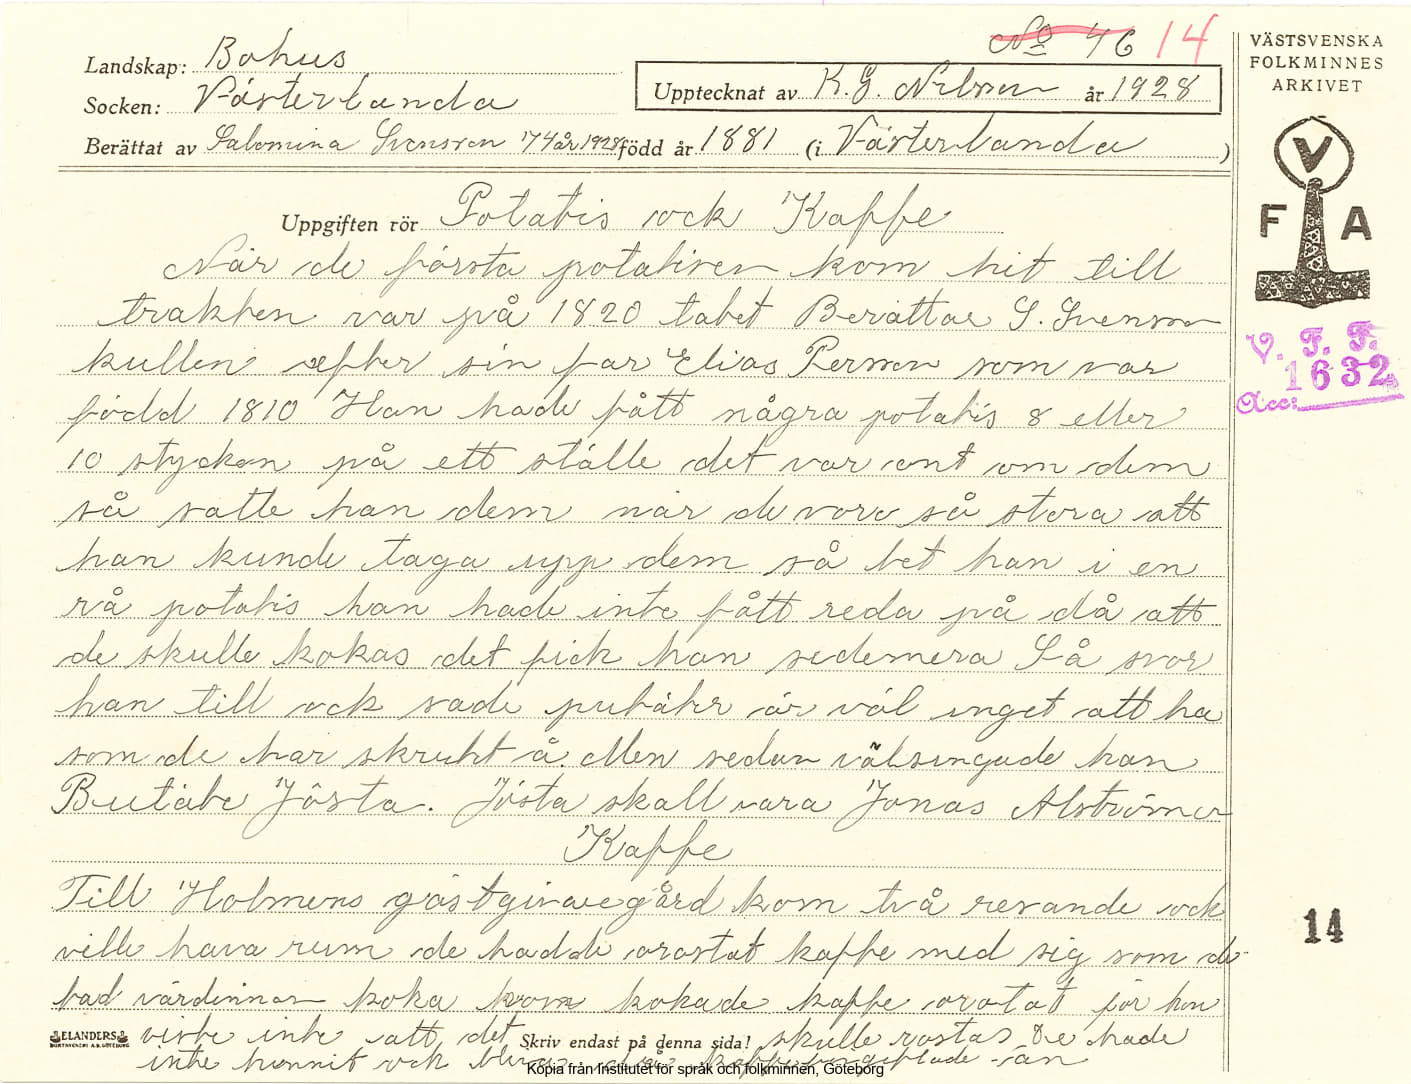 No 46 14
Landskap: Bohus
Socken: Västerlanda
Upptecknat av K.G. Nilsson år 1928
Berättat av Salomina Svensson 74 år 1928 född år 1881 (i Västerlanda)
VÄSTSVENSKA
FOLKMINNES
ARKIVET
V
F A
V. F. F.
1632
Acc:
Uppgiften rör Potatis ock Kaffe
När de första potatisen kom hit till
trakten var på 1820 talet Berättar S. Svensson
kullen efter sin far Elias Person som var
född 1810 Han hade fått några potatis 8 eller
10 stycken på ett ställe det var ont om dem
så satte han dem när de voro så stora att
han kunde taga upp dem så bet han i en
rå potatis han hade inte fått reda på då att
de skulle kokas det fick han sedemera Så svor
han till ock sade putäter är väl inget att ha
som de har skrutit å. Men sedan välsingade han
Butäte Jösta. Jösta skall vara Jonas Alströmer
Kaffe
Till Holmens gästgivaregård kom två resande ock
ville hava rum de hadde orostat kaffe med sig som de
bad värdinnan koka hon kokade kaffe orostat för hon
viste inte att det skulle rostas De hade
inte hunnit ock
14
ELANDERS
BOKTRYCKERI A.B. GÖTEBORG
Skriv endast på denna sida!
Kopia från Institutet för språk och folkminnen, Göteborg